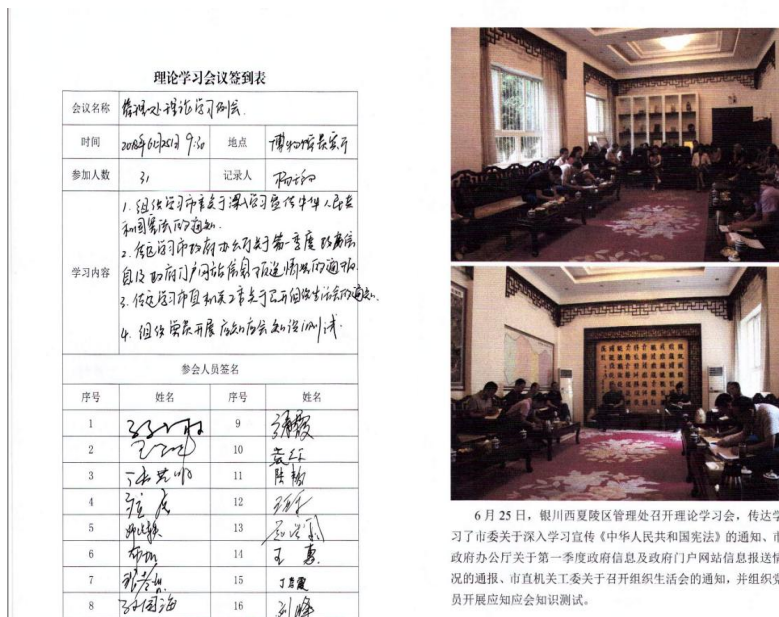 理论学习会议签到表
会议名称 管理处理论学习例会.
时间 2018年6月25日 9:30 地点 博物馆贵宾厅
参加人数 31 记录人
学习内容
1. 组织学习市委关于深入学习宣传中华人民共
和国宪法的通知.
2. 传达学习市政府办公厅关于第一季度政府信
息及政府门户网站信息报送情况的通报.
3. 传达学习市直机关工委关于召开组织生活会的通知.
4. 组织党员开展应知应会知识测试.
参会人员签名
序号 姓名 序号 姓名
1 9
2 10
3 11
4 12
5 13
6 14 王惠
7 15
8 孙国海 16 刘峰
6月25日，银川西夏陵区管理处召开理论学习会，传达学
习了市委关于深入学习宣传《中华人民共和国宪法》的通知、市
政府办公厅关于第一季度政府信息及政府门户网站信息报送情
况的通报、市直机关工委关于召开组织生活会的通知，并组织党
员开展应知应会知识测试。